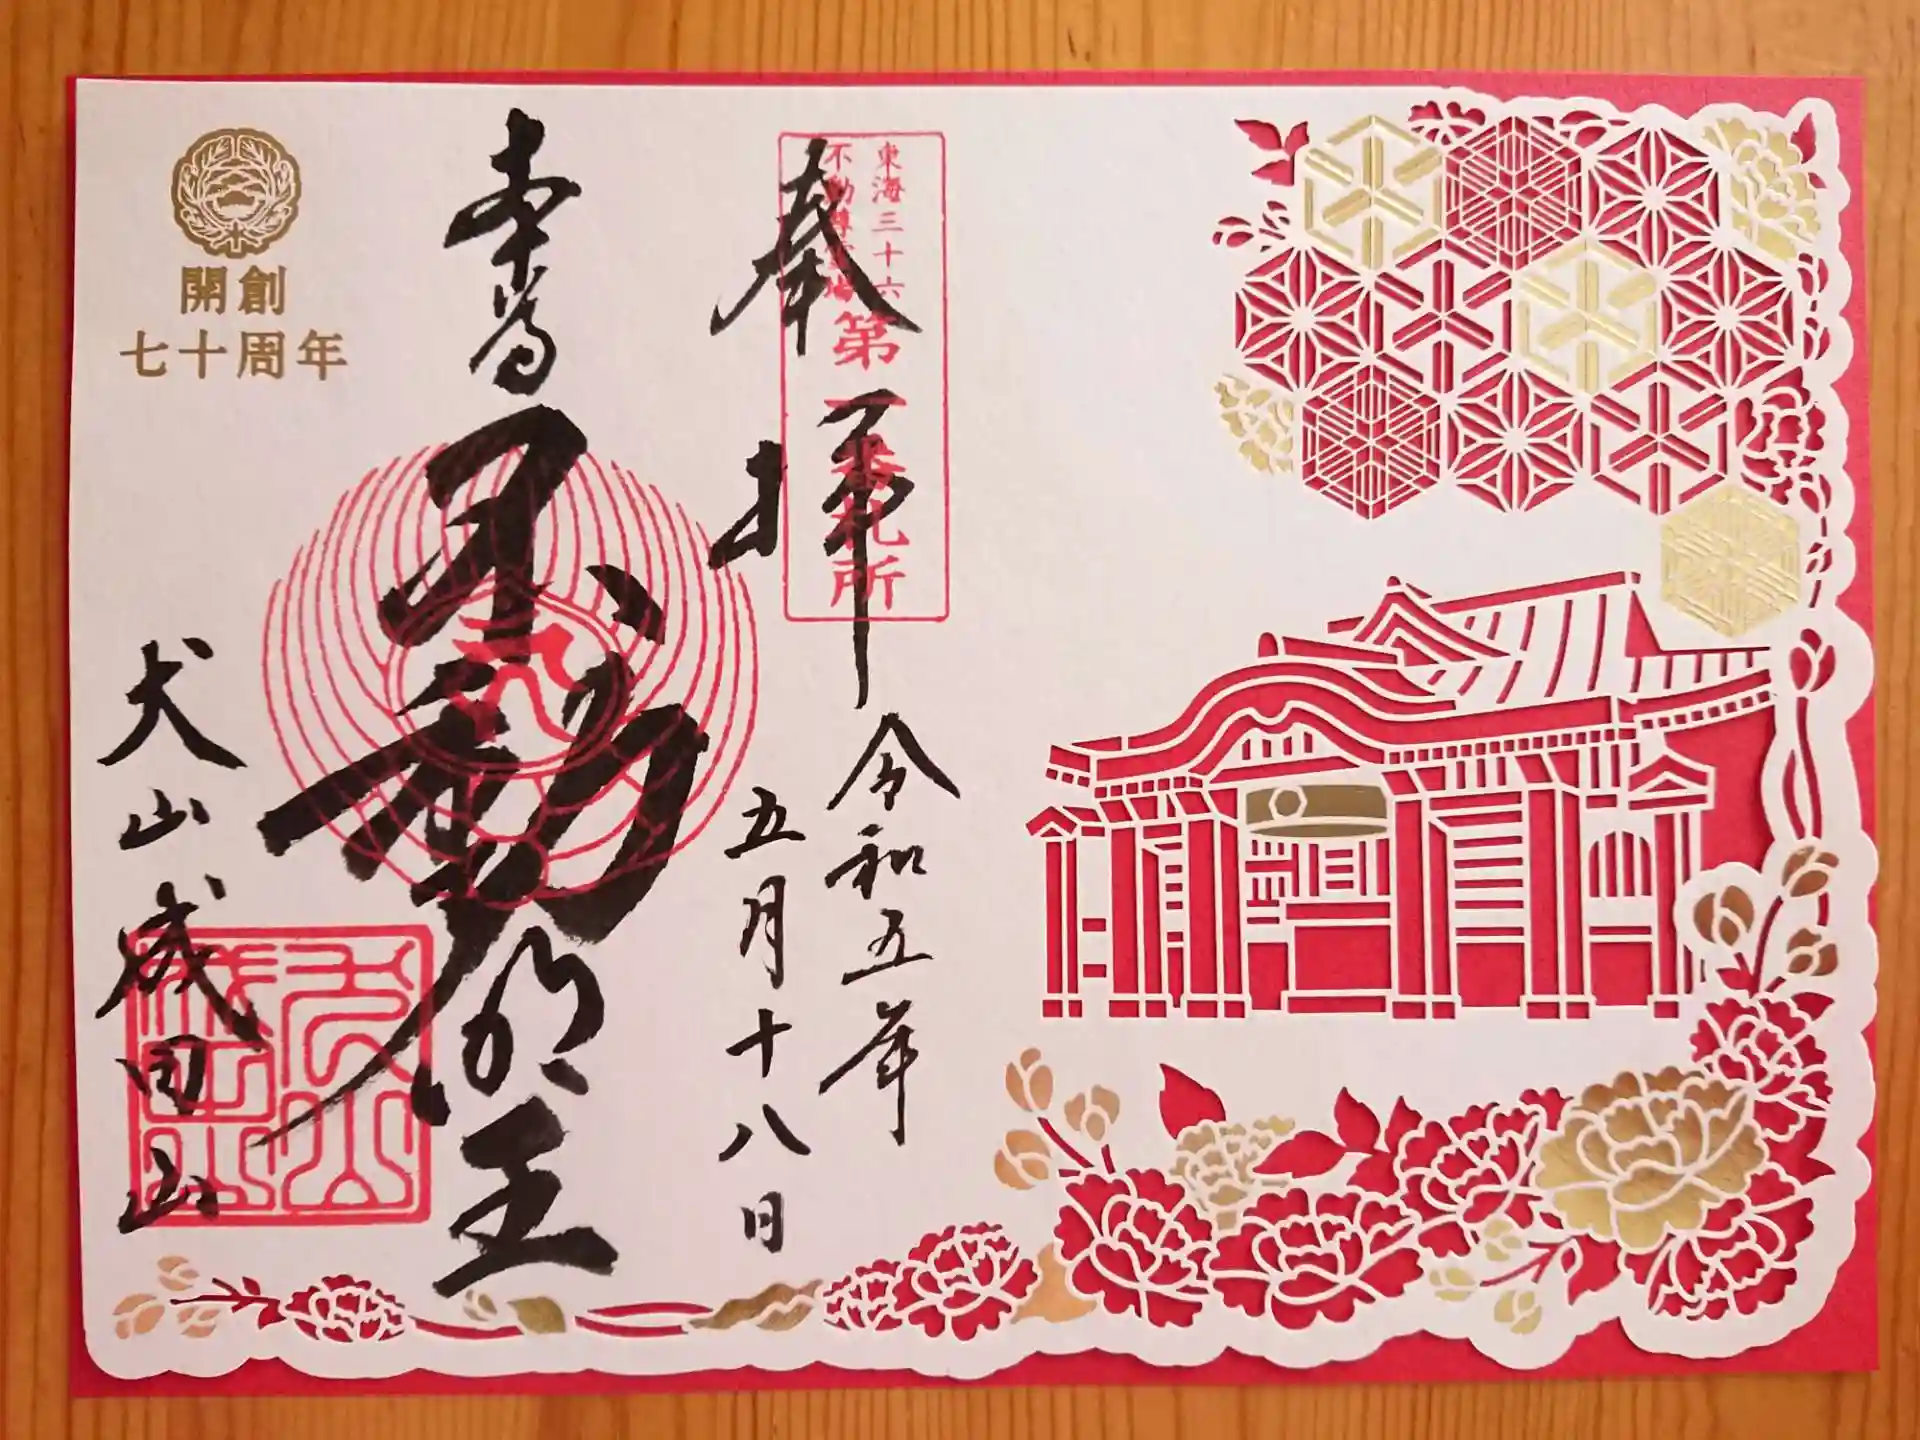 奉拝
東海三十六
不動尊霊場
第一番札所
令和五年
五月十八日
本尊
不動明王
開創
七十周年
犬山成田山